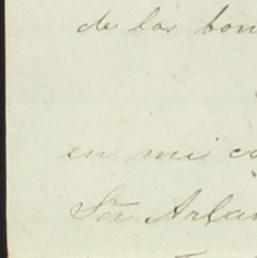 de los bon
en mi co
Sor Arlan